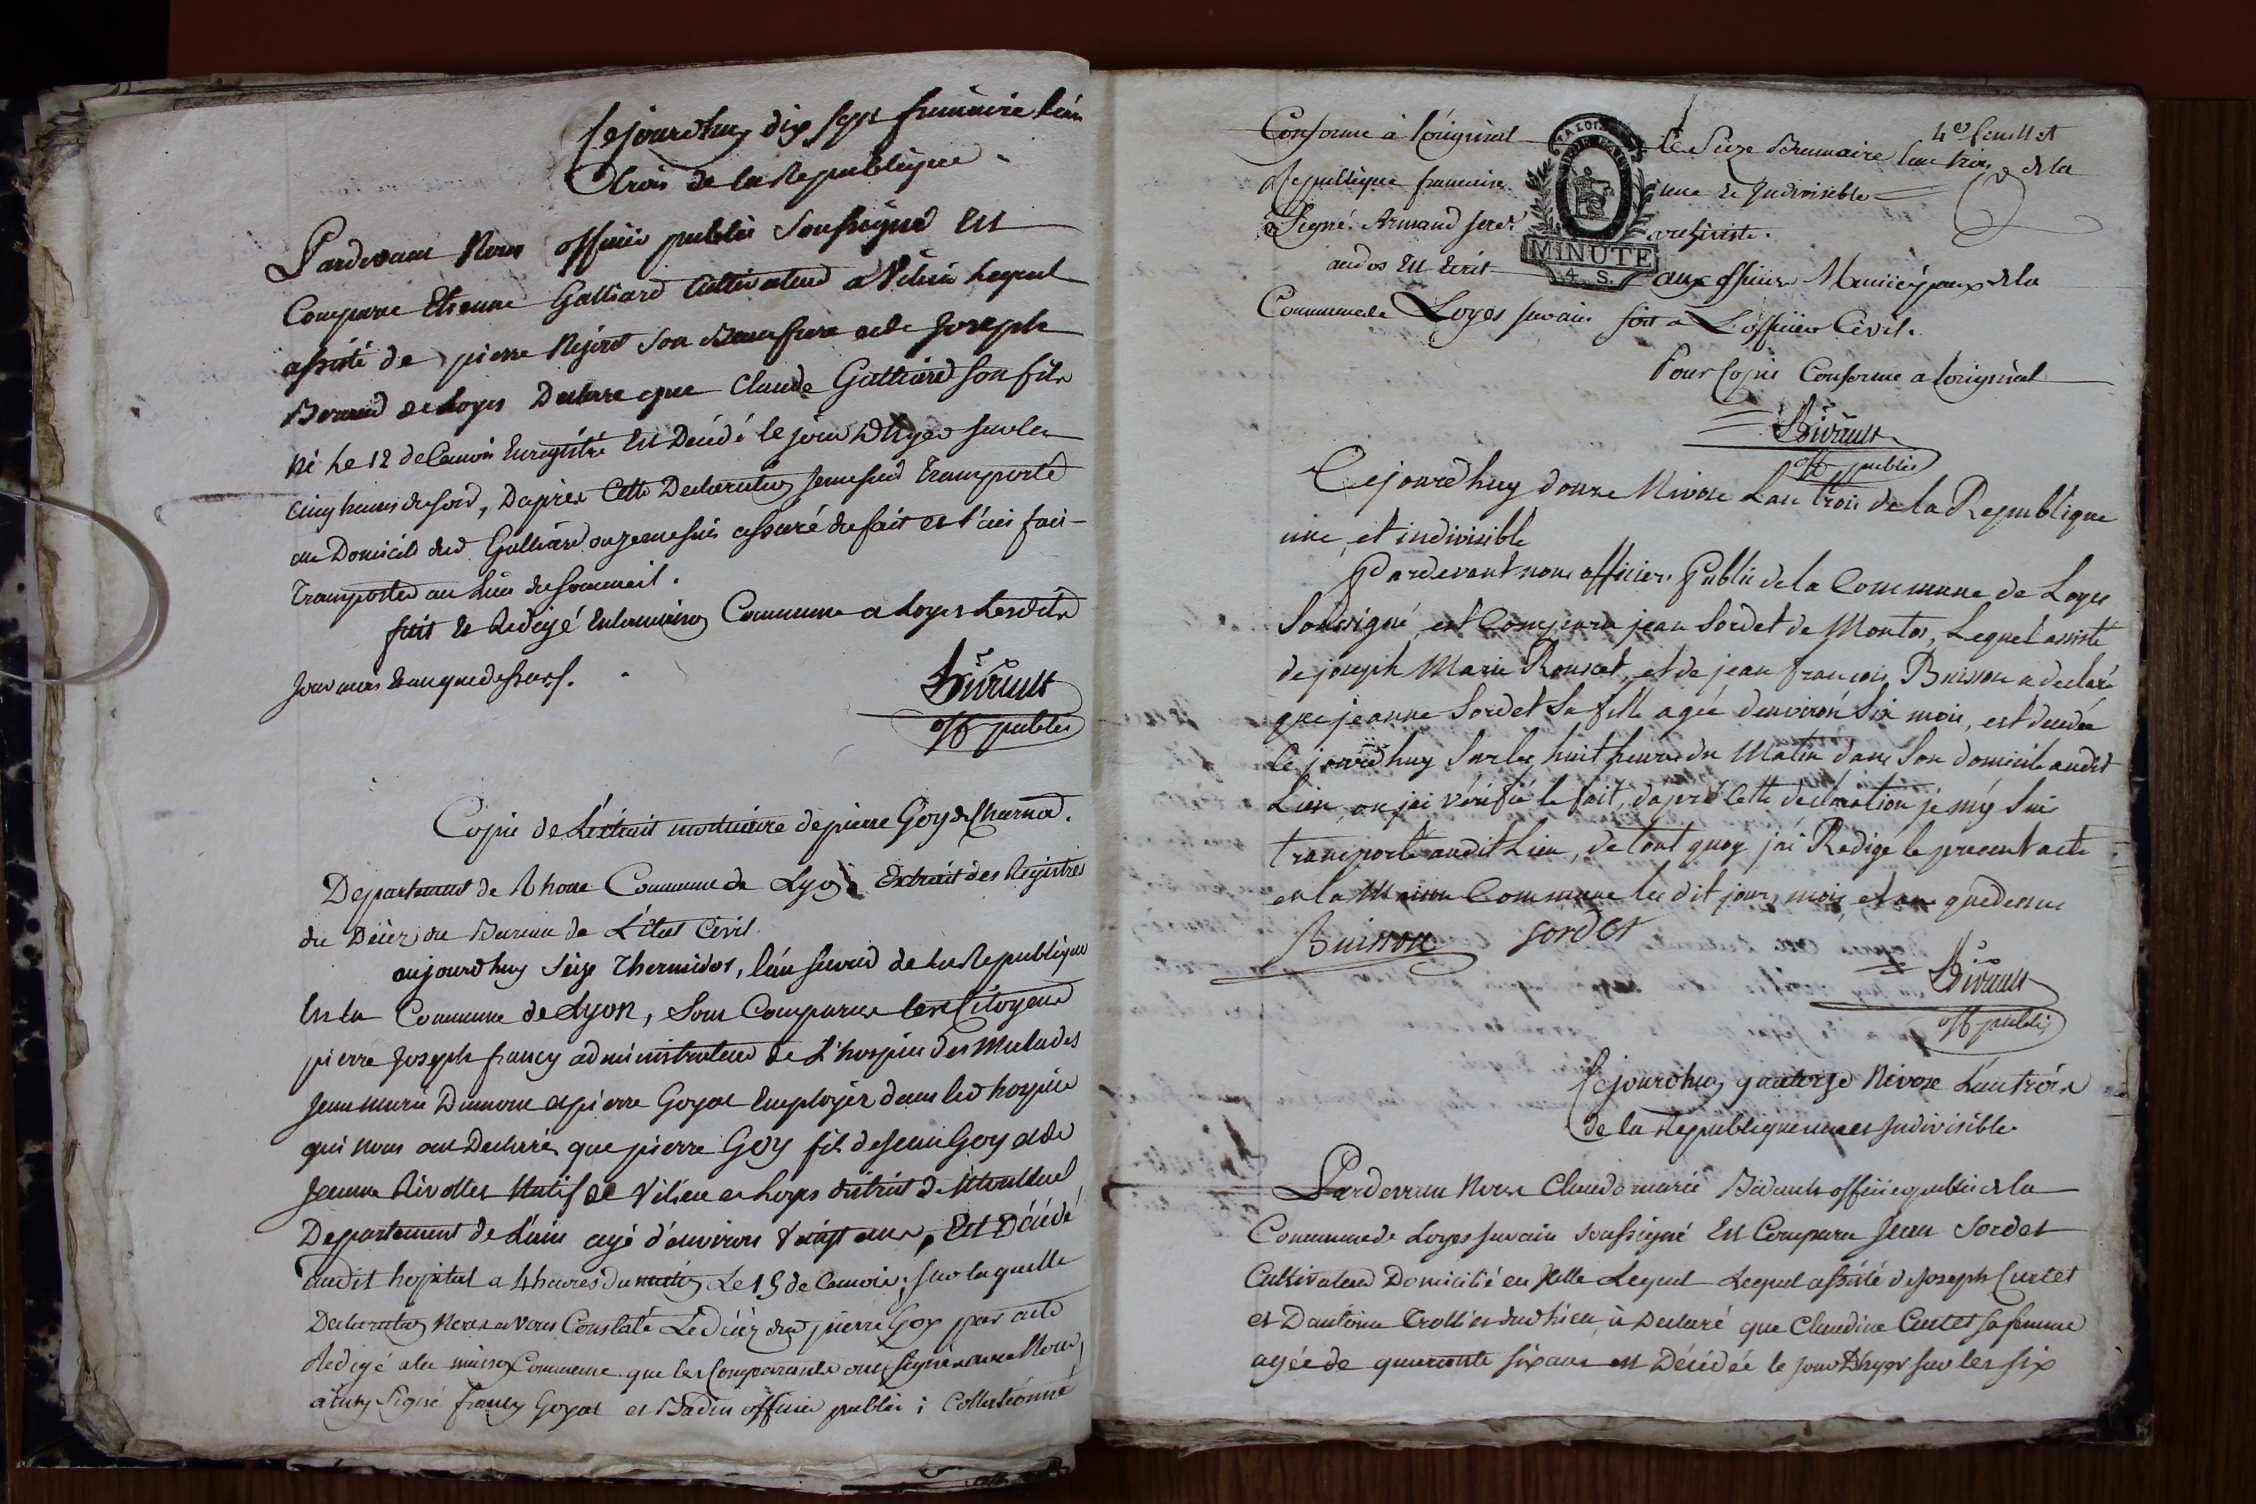 Cejourdhuy dix sept frimaire l'an
trois de la Republique
Pardevant Nous officier public Soussigné Est
Comparu Etienne Galliard Cultivateur a Vilieu Lequel
assisté de pierre son Beaufrere et de Joseph
de Loyes Declare que Claude Galliard son fils
né le 12 de Cemois Enregistré Est Décédé le jour D'hyer sur les
cinq heures du soir, Daprés Cette Declaration Jemesuis Transporté
au Domicile dud Galliard ou jemesuis assuré du fait et l'ai fait
Transporter au Lieu du Sommeil.
fait Et Redigé En la maison Commune a Loyes Lesdits
Jour mois Et an que dessus.
Bivault
off public
Copie de L'éxtrait mortuaire de pierre Goy de Charnod.
Departement de Rhone Commune de Lyon Extrait des Registres
du Décez du Bureau de L'état Civil
aujourdhuy Seize Thermidor, l'an second de la Republique
En la Commune de Lyon, Sont Comparus les Citoyens
pierre Joseph francy administrateur de L'hospice des Malades
Jean marie Dumont et pierre Goyat Employés dans led hospice
qui nous ont Declaré que pierre Goy fils de Jean Goy et de
Jeanne Rivollet Natif de Vilieu et Loyes district de Montluel
Departement de L'ain agé d'environ vaingt ans, Est Décédé
audit hopital a 4 heures du matin Le 15 de Cemois; sur laquelle
Declaration Nous avons Constaté Le Décez dud pierre Goy par acte
Redigé a la maison Commune que les Comparants ont signé avec Nous,
ainsy Signé francy Goyat et Badin officier public; Collationné
4e feuillet
Conforme à l'original le Seize Brumaire l'an trois de la
Republique francaise une et Indivisible
Signé Armand archiviste.
LA LOI
MINUTE
4. S.
au dos Est Ecrit aux officiers Municipaux de la
Commune de Loyes sur ain soit a L'officier Civil.
Pour Copie Conforme a loriginal
Bivault
off public
Cejourdhuy douze Nivose L'an trois de la Republique
une, et indivisible
Pardevant nous officier Public de la Commune de Loyes
Soussigné, est Comparu jean Sordet de Montos, Lequel assisté
de joseph Marie Rousset, et de jean francois Buisson a declaré
que jeanne Sordet Sa fille agée d'environ Six mois, est decedée
Ce jourdhuy Sur les huit heures du Matin dans Son domicile audit
Lieu, ou jai vérifié le fait, daprès Cette declaration je m'y Suis
transporté audit Lieu, de tout quoy j'ai Redigé le present acte
en la Maison Commune les dit jour, mois, et an que dessus
Buisson sordet
Bivault
off public
Cejourdhuy quatorze Nivose L'an trois
de la Republique une et Indivisible
Pardevant Nous Claude marie Bivault officier public de la
Commune de Loyes sur ain soussigné Est Comparu Jean Sordet
Cultivateur Domicilié en Lequel Lequel assisté de Joseph Curtet
et D'antoine Trollier dud Lieu, à Declaré que Claudine Curtet sa femme
agée de quarente six ans est Décédée le jour D'hyer sur les six